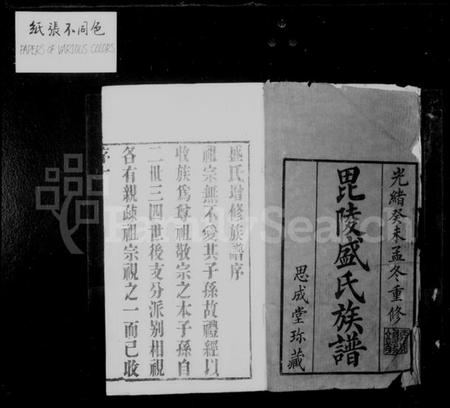 紙張不同色
PAPERS OF VARIOUS COLORS
光緒癸未孟冬重修
毘陵盛氏族譜
思成堂珍藏
盛氏增修族譜序
祖宗無不愛其子孫故禮經以
收族爲尊祖敬宗之本子孫自
二世三四世後支分派别相視
各有親疎祖宗視之一而已收
FamilySearch